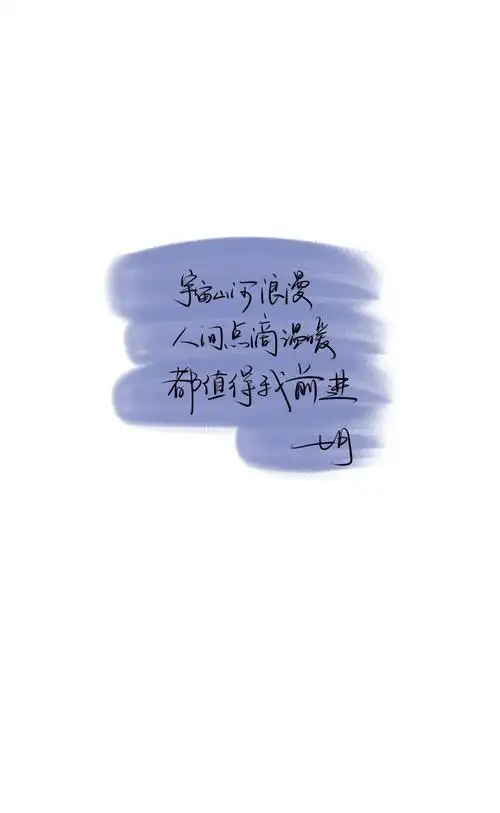 宇宙山河浪漫
人间点滴温暖
都值得我前进
一七月